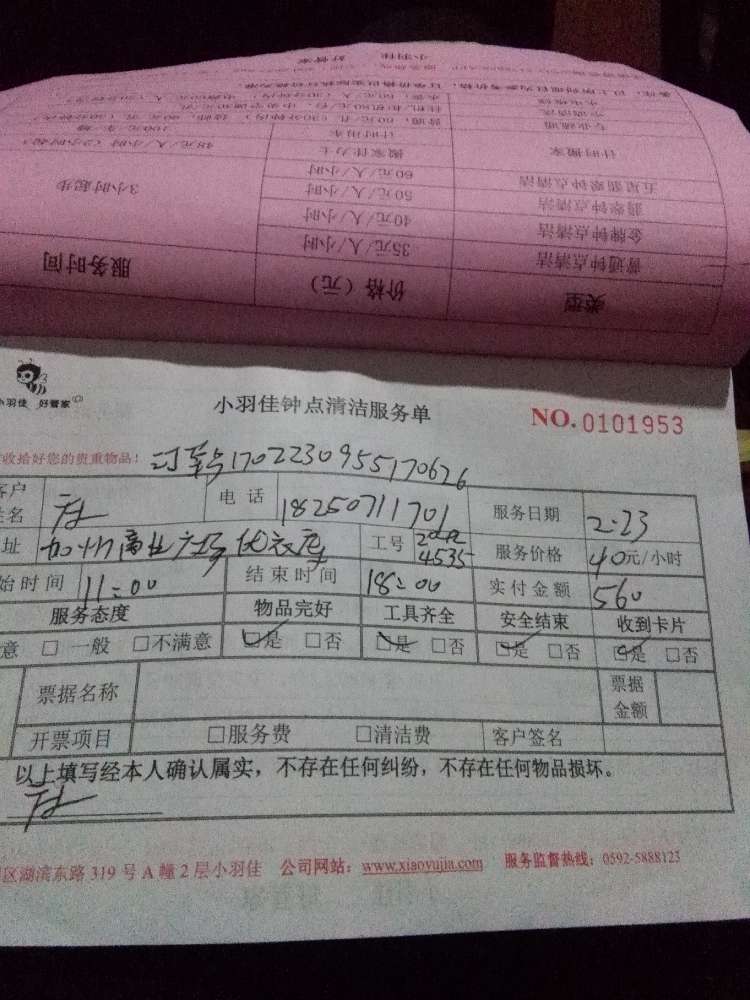 小羽佳 好管家
类型 价格（元） 服务时间
普通钟点清洁 35元/人/小时
金牌钟点清洁 40元/人/小时 3小时起步
翡翠钟点清洁 50元/人/小时
五星翡翠钟点清洁 60元/人/小时
计时搬家 搬家佳力士 48元/人/小时（2小时起）
计时用车 100元/车/趟
小羽佳 好管家
小羽佳钟点清洁服务单
NO.0101953
收拾好您的贵重物品！ 订单号1702230955170626
客户姓名 电话 18250711701 服务日期 2.23
址 加州商业广场优衣库 工号 4535 服务价格 40元/小时
始时间 11:00 结束时间 18:00 实付金额 560
服务态度 物品完好 工具齐全 安全结束 收到卡片
意 □ 一般 □不满意 ☑是 □否 ☑是 □否 ☑是 □否 ☑是 □否
票据名称 票据金额
开票项目 □服务费 □清洁费 客户签名
以上填写经本人确认属实，不存在任何纠纷，不存在任何物品损坏。
区湖滨东路319号A幢2层小羽佳 公司网站：www.xiaoyujia.com 服务监督热线：0592-5888123